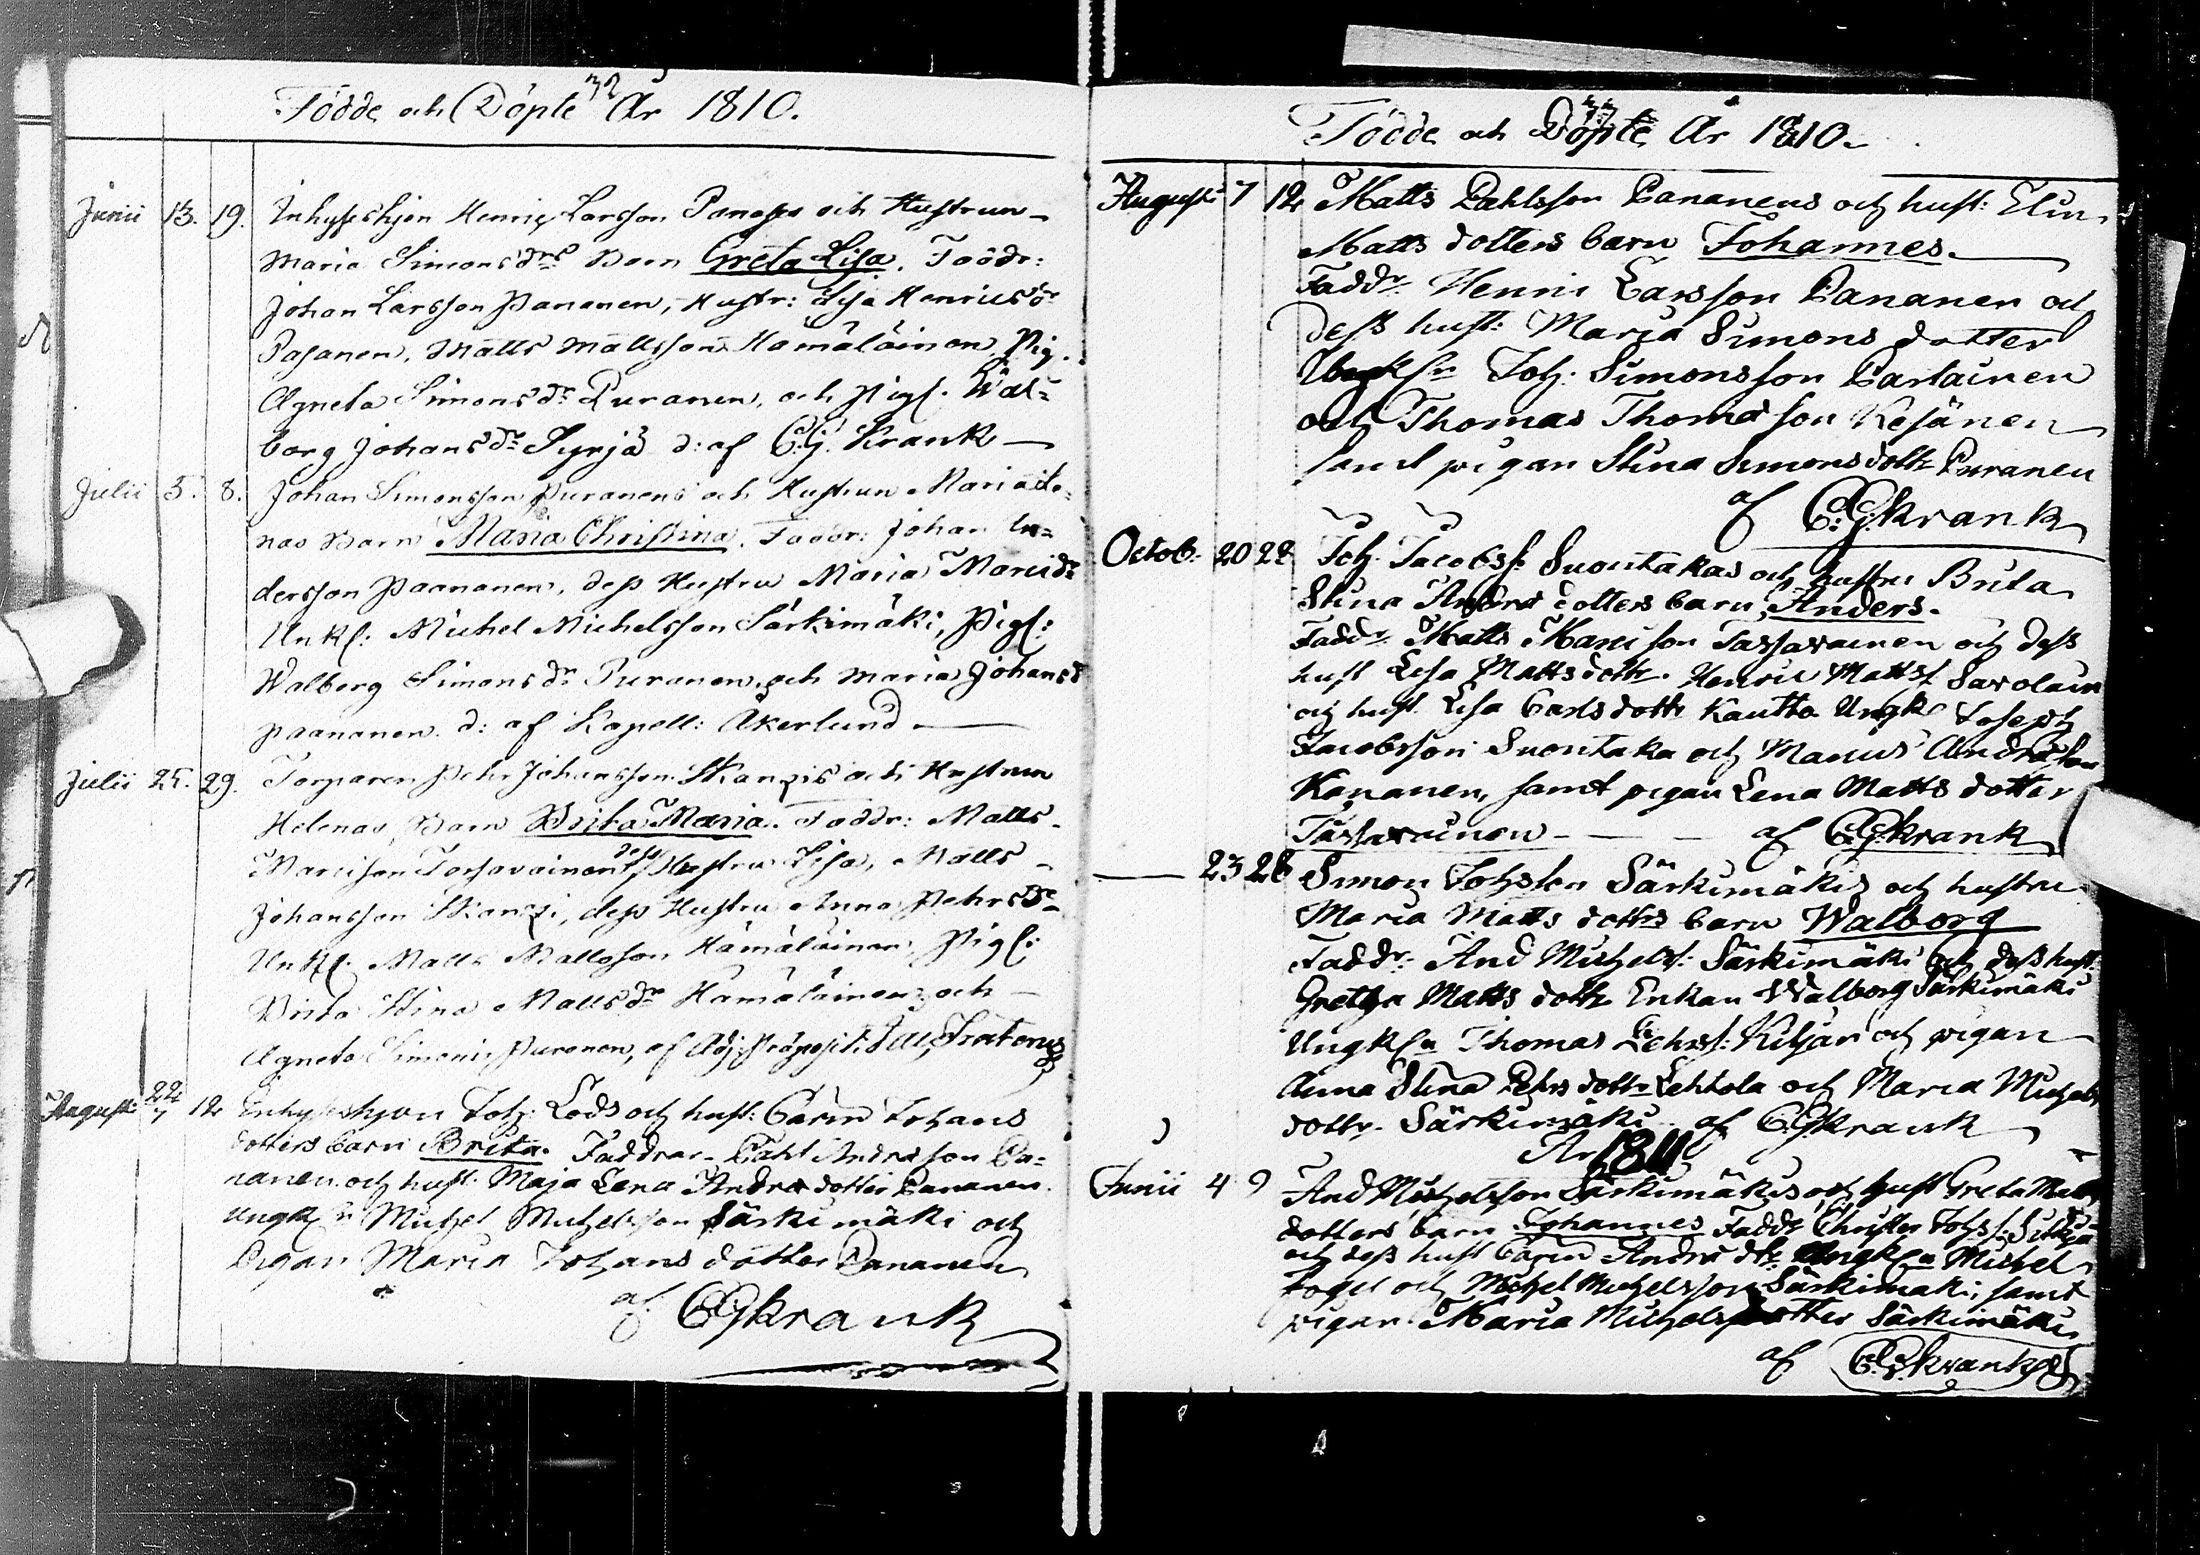 32
Födde och Döpte År 1810.
Junii 13. 19. Inhyseshjon Henric Larsson Panases och Hustrun
Maria Simonsdrs Barn Greta Lisa. Faddr:
Johan Larsson Pananen, Hustr: Lisa Henricsdr
Pasanen, Matts Mattsson Hämäläinen, Pig.
Agneta Simonsdr Puranen, och Pigf. Wal=
borg Johansdr Syrjä d: af C. G. Krank
Julii 5. 8. Johan Simonsson Puranens och Hustrun Maria
nas Barn Maria Christina. Faddr: Johan An=
dersson Paananen, dess Hustru Maria Marcidr
Unkf: Michel Michelsson Särkimäki, Pigf:
Walborg Simonsdr Puranen, och Maria Johansd
Paananen. d: af Kapell: Åkerlund
Julii 25. 29. Torparen Pehr Johansson Kanzis och Hustrun
Helenas Barn Brita Maria. Faddr: Matts
Marcison Torsovainen, dess Hustru Lisa, Matts
Johansson Kanzi, dess Hustru Anna Pehrsdr
Unkf: Matts Mattsson Hämäläinen, Pigf:
Brita Stina Mattsdr Hämäläinen, och
Agneta Simonis Puranen, af Adj: Præpositi
August: 22/7 12 Inhyseshjon Joh: Lods och hust: Carin Johans
dotters barn Brita. Faddrar Påhl Andersson Pa=
nanen och hust: Maja Lena Anders dotter Pananen.
Ungk:n Michel Michelsson Särkimäki och
Pigan Maria Johans dotter Pananen
af C: G: Krank
33
Födde och Döpte År 1810.
Augusti 7 12 Matts Pahlsson Pananens och hust: Elin
Matts dotters barn Johannes.
Faddr: Henric Larsson Pananen och
dess hust: Maria Simons dotter
Ungk:n Joh: Simonsson Partainen
och Thomas Thomasson Kesänen
samt pigan Stina Simons dottr Puranen
af C: G: Krank
Octob: 20 22 Joh. Jacobss: Suontakas och hustru Brita
Stina Anders dotters barn, Anders.
Faddr: Matts Marcison Tarsavainen och dess
hust Lisa Matts dottr. Henric Mattss Savolain
och hust. Lisa Carls dottr Kautto Ungk: Joseph
Jacobsson Suontaka och Marcus Andersson
Kananen, samt pigan Lena Matts dotter
Tarsavainen af C: G: Krank
23 28 Simon Johsson Särkimäkis och hustru
Maria Matts dottrs barn Walborg
Faddr: And Michelss: Särkimäki och dess hust:
Gretha Matts dottr Enkan Walborg Särkimäki
Ungk:n Thomas Pehrss: Kiljari och pigan
Anna Stina Pehrs dottr Lehtola och Maria Michels
dottr. Särkimäki af C: G: Krank
År 1811
Junii 4 9 And Michelsson Särkimäkis och hust Greta Matts
dotters barn Johannes Faddr Christer Johss:
och dess hust Carin Anders dtr. Ungk:n Michel
Fogel och Michel Michelsson Särkimäki, samt
pigan Maria Michelsdotter Särkimäki
af C: G: Krank